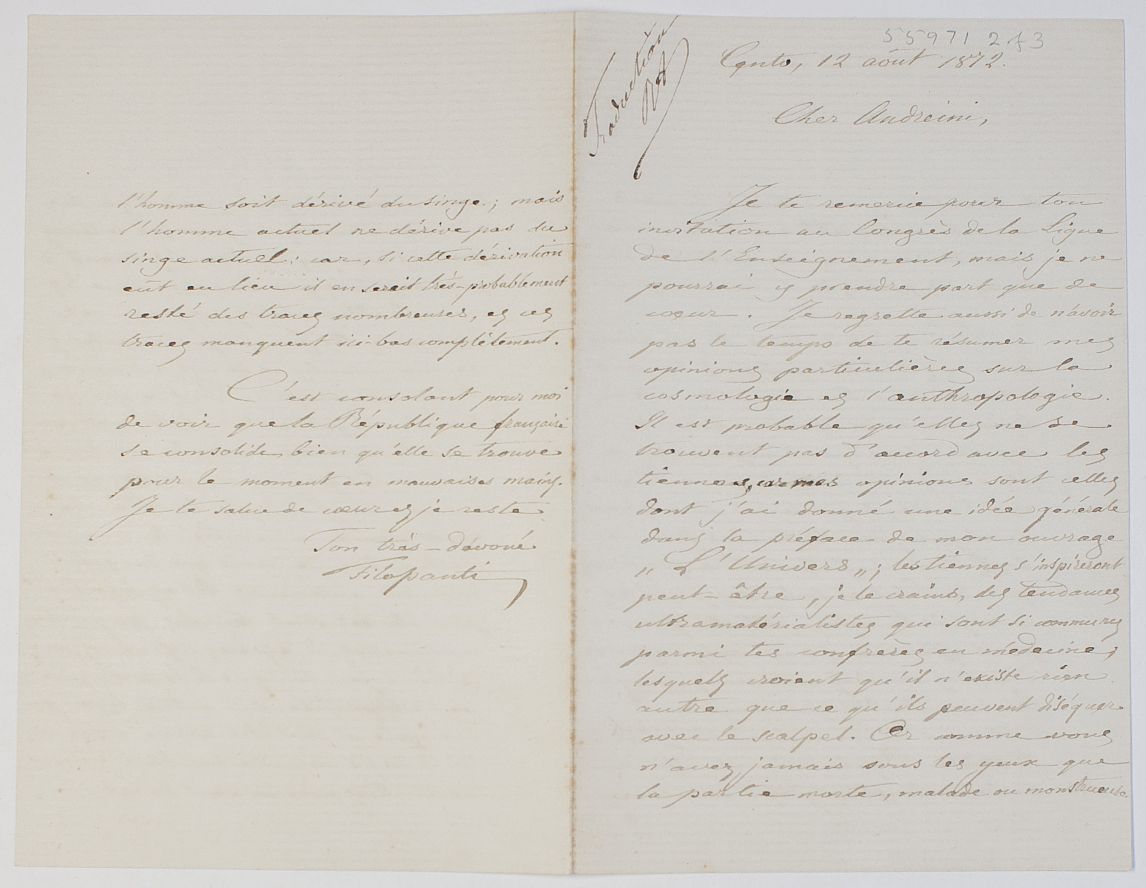 55971 2f3
Traduction
Cento, 12 août 1872.
Cher Andreini,
Je te remercie pour ton
invitation au Congrès de la Ligue
de l'Enseignement, mais je ne
pourrai y prendre part que de
cœur. Je regrette aussi de n'avoir
pas le temps de te résumer mes
opinions particulières sur la
cosmologie et l'anthropologie.
Il est probable qu'elles ne se
trouvent pas d'accord avec les
tiennes, car mes opinions sont celles
dont j'ai donné une idée générale
dans la préface de mon ouvrage
„ L'Univers „; les tiennes s'inspireront
peut-être, je le crains, des tendances
ultramatérialistes qui sont si communes
parmi tes confrères en médecine,
lesquels croient qu'il n'existe rien
autre que ce qu'ils peuvent diséquer
avec le scalpel. Or comme vous
n'avez jamais sous les yeux que
la partie morte, malade ou monstrueuse
l'homme soit dérivé du singe; mais
l'homme actuel ne dérive pas du
singe actuel; car, si cette dérivation
eût eu lieu il en serait très-probablement
resté des traces nombreuses, et ces
traces manquent ici-bas complètement.
C'est consolant pour moi
de voir que la République française
se consolide bien qu'elle se trouve
pour le moment en mauvaises mains.
Je te salue de cœur et je reste
Ton très-dévoué
Filopanti